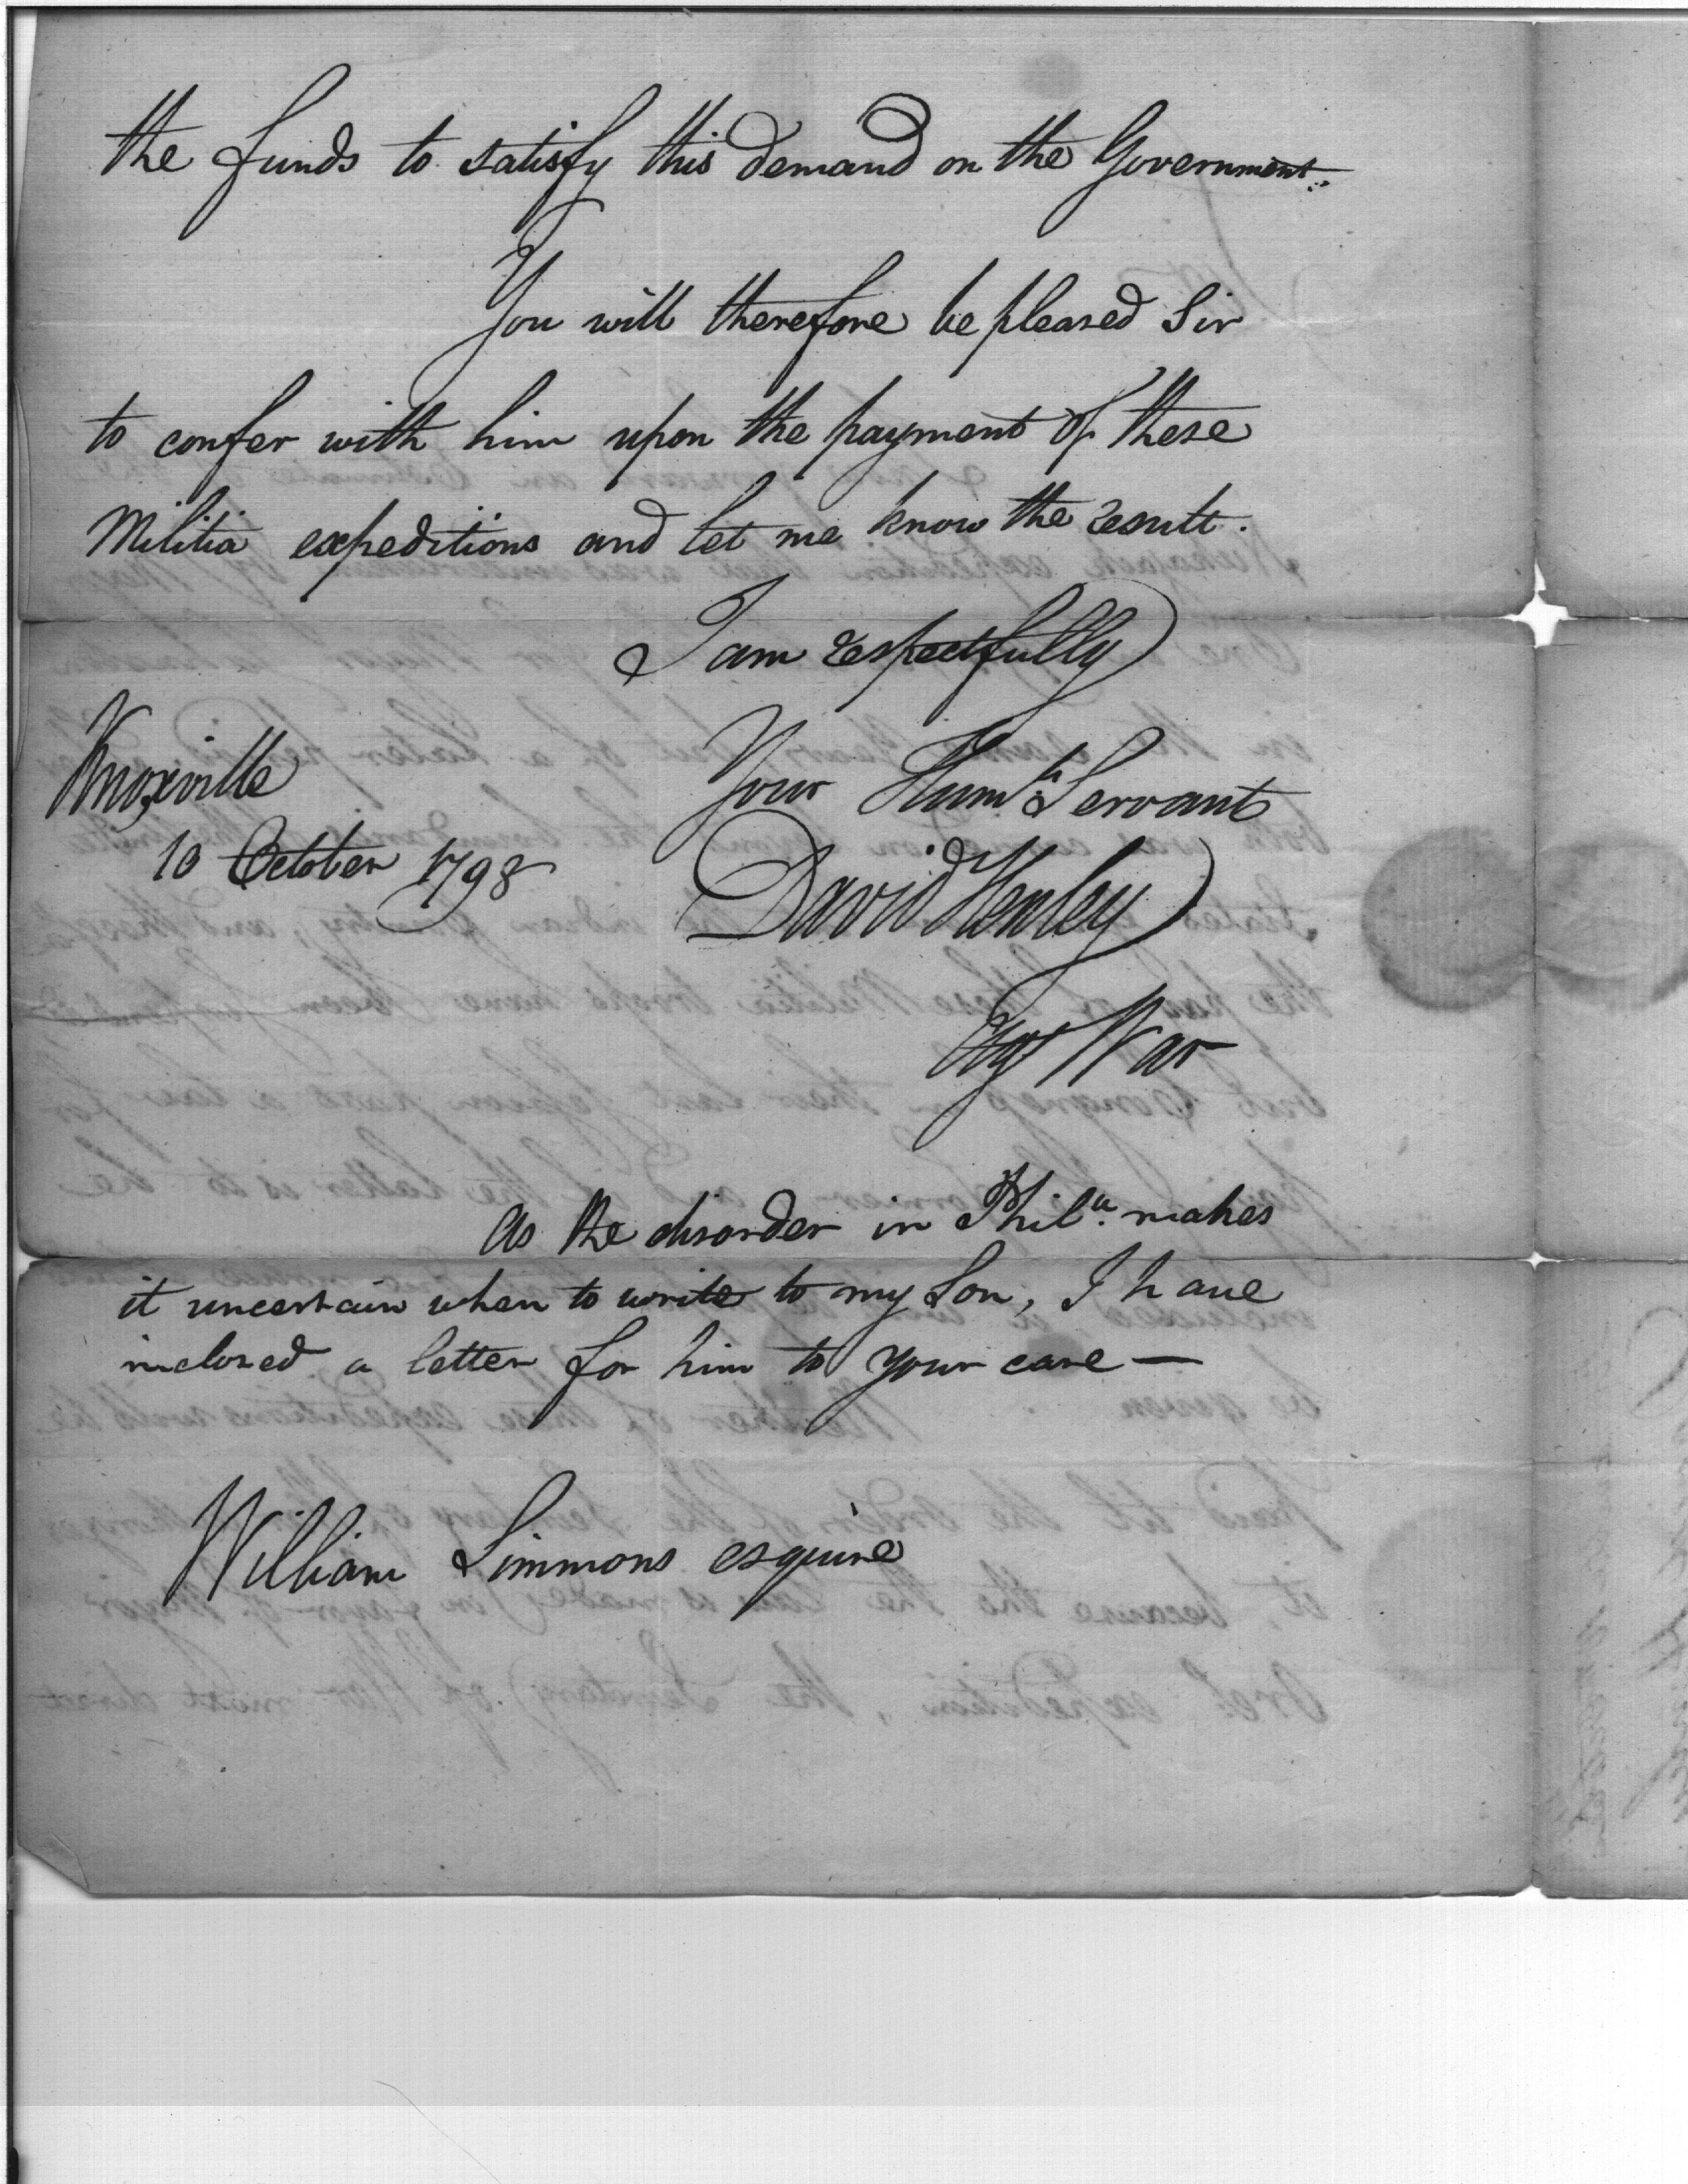 the funds to satisfy this demand on the Government.
You will therefore be pleased Sir
to confer with him upon the payment of these
Militia expeditions and let me know the result.
I am respectfully
Your Humb Servant
Knoxville
10 October 1798
David Henley
Agt War
As the disorder in Phila. makes
it uncertain when to write to my Son, I have
inclosed a letter for him to your care —
William Simmons esquire